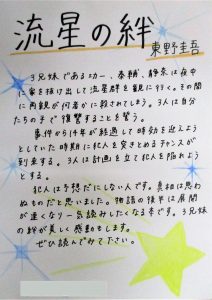 流星の絆
東野圭吾
3兄妹である功一、泰輔、静奈は夜中
に家を抜け出して流星群を観に行く。その間
に両親が何者かに殺されてしまう。3人は自分
たちの手で復讐することを誓う。
事件から14年が経過して時効を迎えよう
としていた時期に犯人を突きとめるチャンスが
到来する。3人は計画を立て犯人を陥れよう
とする。
犯人は予想だにしない人です。真相は思わ
ぬものだと思いました。物語の後半は展開
が速くなり一気読みしたくなる本です。3兄妹
の絆が美しく感動もします。
ぜひ読んでみて下さい。